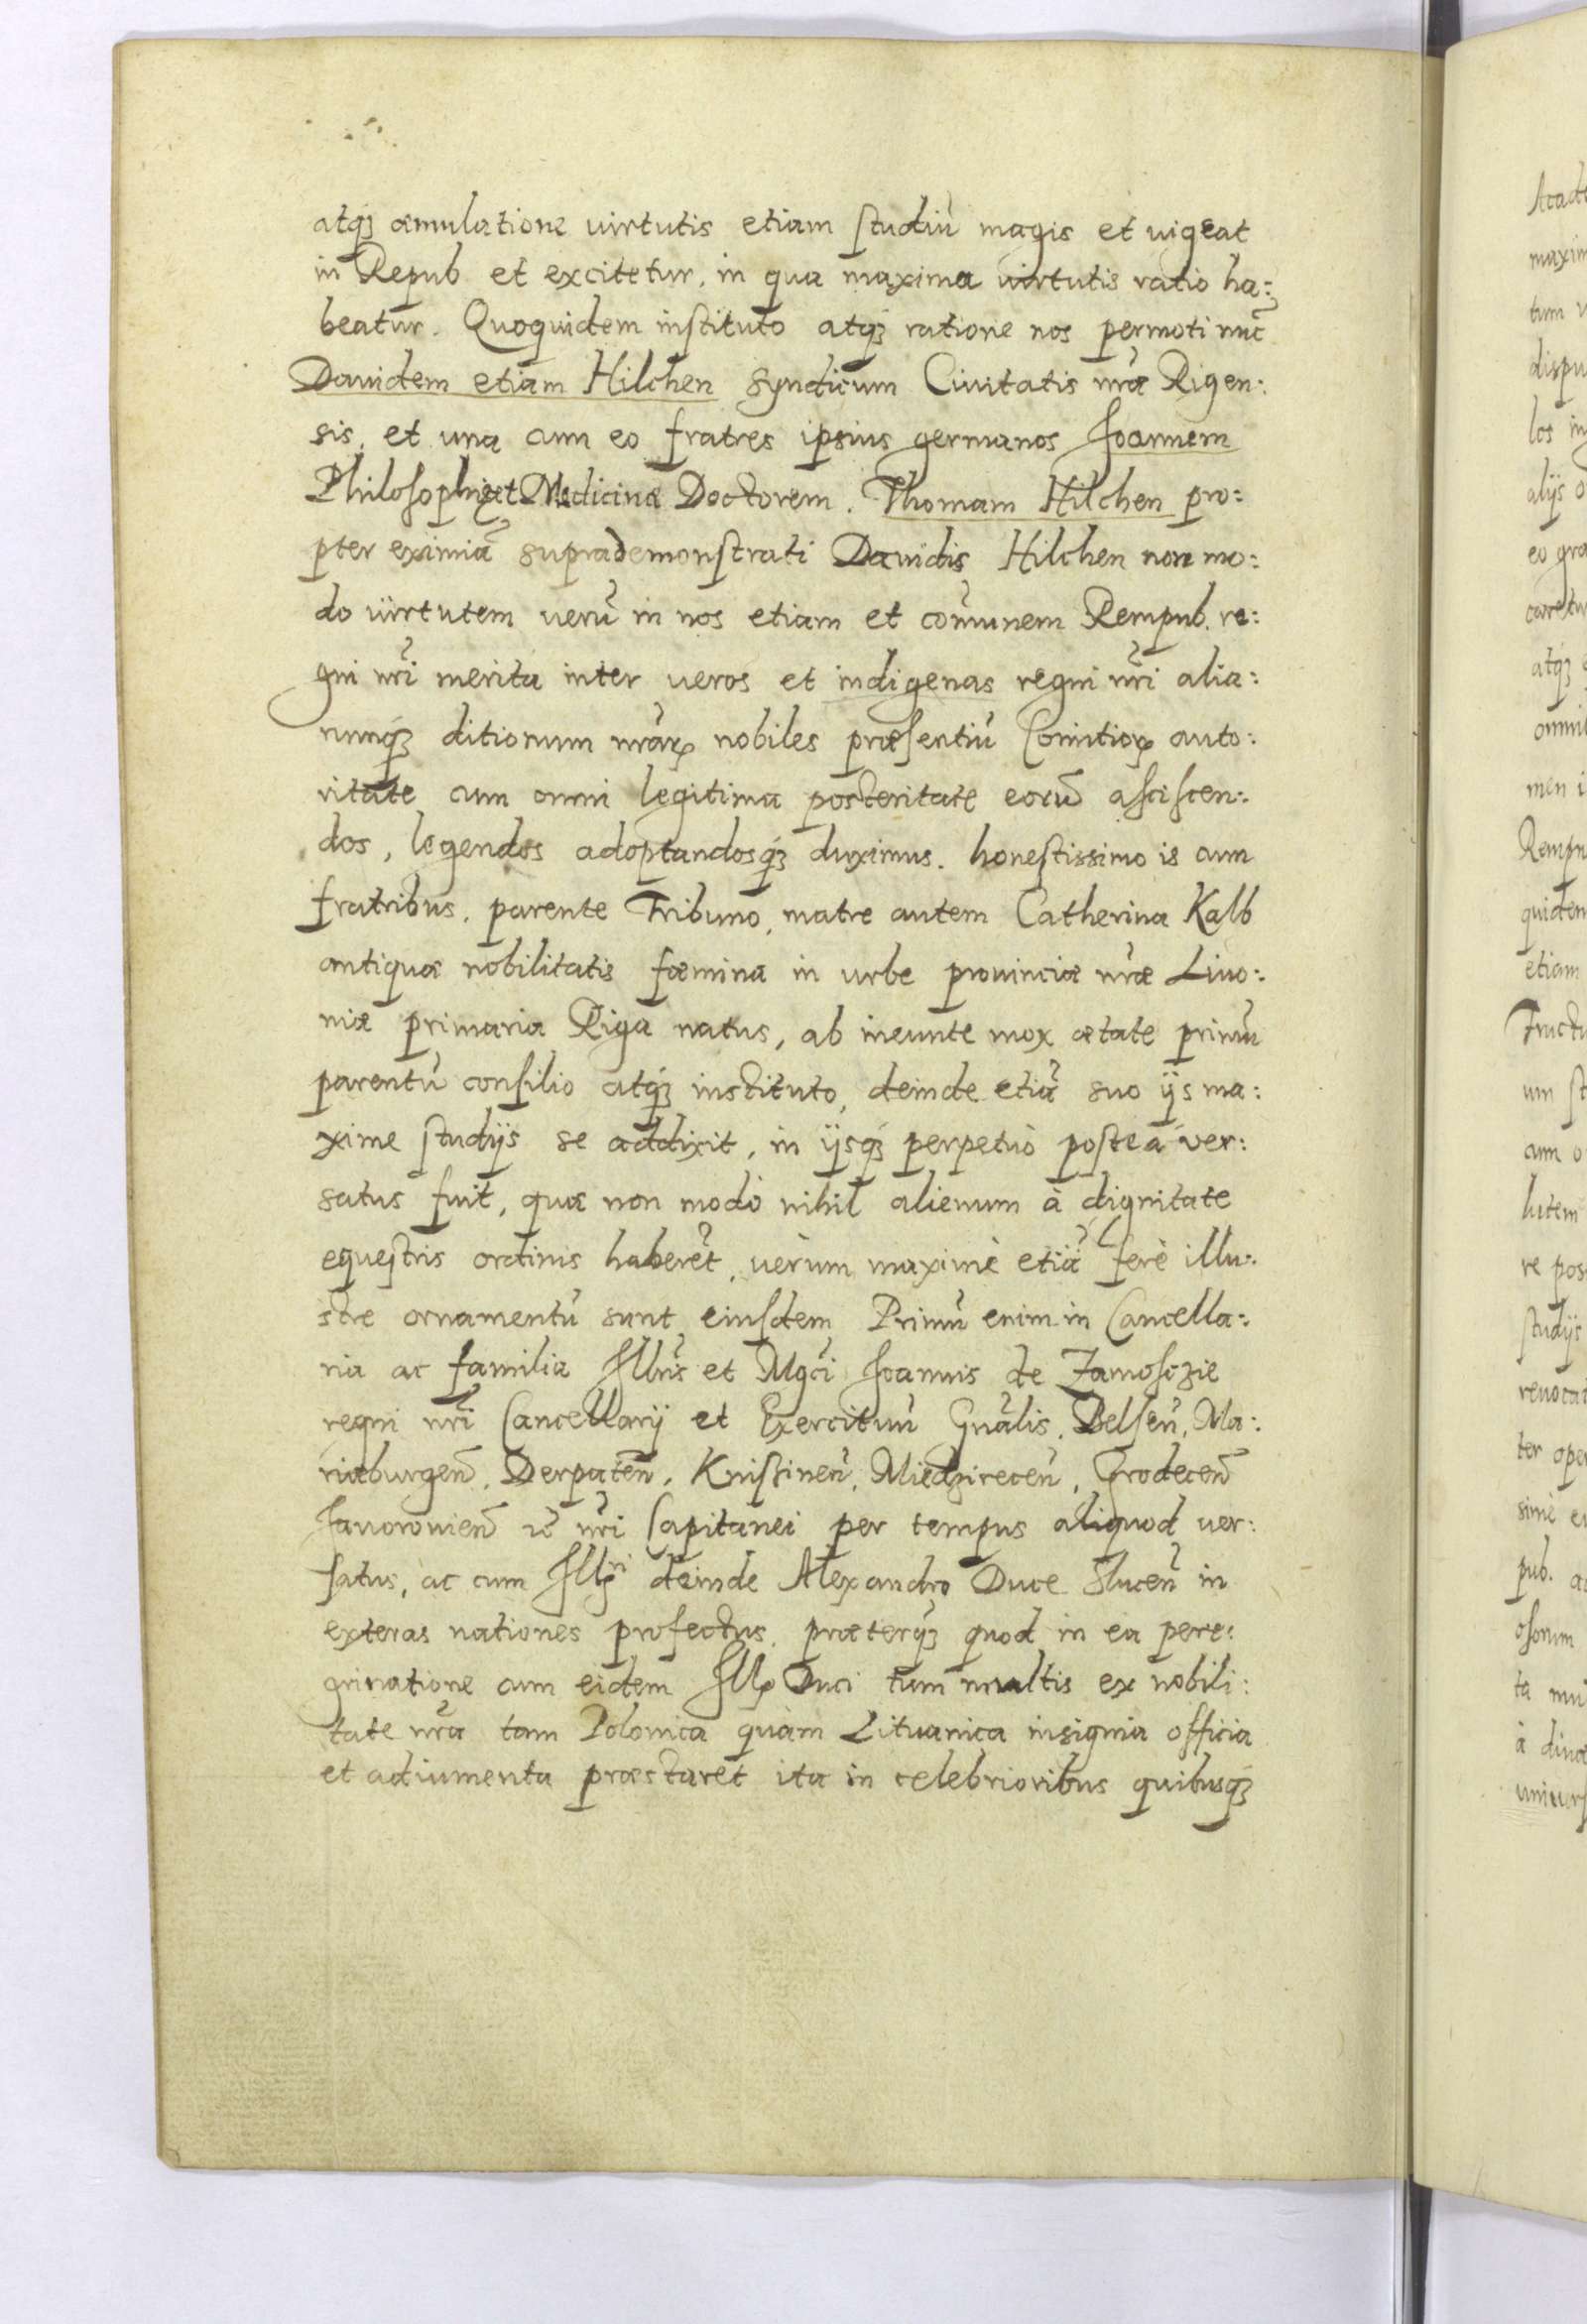 atq́ꝫ æmulatione virtutis etiam studiũ magis et uigeat
in Repub et excitetur, in qua maxima virtutis ratio ha:
beatur. Quoquidem instituto atq́ꝫ ratione nos permoti nũc
Dauidem etiam Hilchen Syndicum Ciuitatis nr̃æ Rigen:
sis, et una cum eo fratres ipsius germanos Joannem
Philosophiæ et Medicinæ Doctorem. Thomam Hilchen pro:
pter eximiã suprademonstrati Dauidis Hilchen non mo:
do uirtutem uerũ in nos etiam et com̃unem Rempub. re:
gni nr̃i merita inter ueros et indigenas regni nr̃i alia:
rumq́ꝫ ditionum nr̃aꝝ nobiles præsentiũ Comitioꝝ auto:
ritate cum omni legitima posteritate eorũ asciscen:
dos, legendos adoptandosq́ꝫ duximus. honestissimo is cum
fratribus, parente Tribuno, matre autem Catherina Kalb
antiquæ nobilitatis fœmina in urbe prouinciæ nr̃æ Liuo:
niæ primaria Riga natus, ab ineunte mox ætate primũ
parentũ consilio atq́ꝫ instituto, deinde etiã suo ijs ma:
xime studijs se addixit, in ijsq́ꝫ perpetuò posteà uer:
satus fuit, quæ non modò nihil alienum à dignitate
equestris ordinis haberẽt, uèrum maximè etiã ferè illu:
stre ornamentũ sunt eiusdem Primũ enim in Cancella:
ria ac familia Illrĩs et Mgc̃i Joannis de Zamosczie
regni nr̃i Cancellarij et Exercituũ Gnãlis, Belseñ, Ma:
riæburgeñ, Derpateñ, Knistineñ, Miedzireceñ, Grodeceñ
Jauorouieñ ec̃ nr̃i Capitanei per tempus aliquod uer:
satus, ac cum Illꝝi deinde Alexandro Duce Sluceñ in
exteras nationes profectus, præterq́ꝫ quod in ea pere:
grinatione cum eidem Illꝝ Duci tum multis ex nobili:
tate nr̃a tam Polonica quàm Lituanica insignia officia
et adiumenta præstaret ita in celebrioribus quibusq́ꝫ